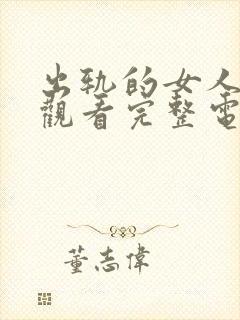 出轨的女人
觀看完整電
董志偉